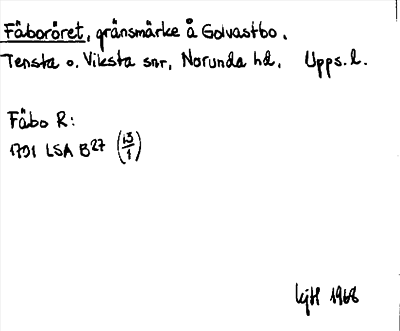 Fäboröret, gränsmärke å Golvastbo.
Tensta o. Viksta snr, Norunda hd. Upps. l.
Fäbo R:
1701 LSA B27 (13/1)
1968